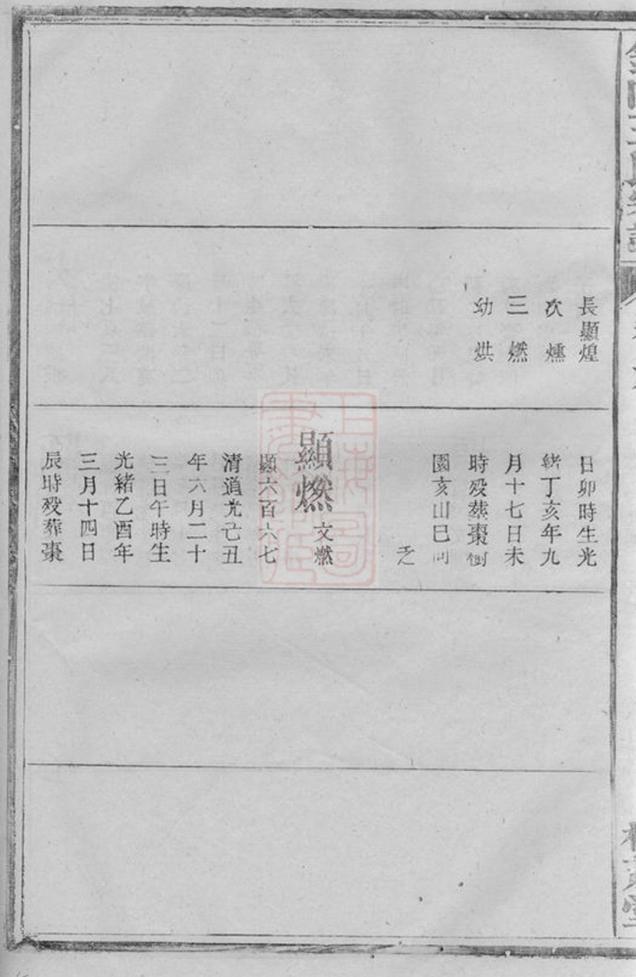 長顯煌
次燻
三燃
幼烘
日卯時生光
緒丁亥年九
月十七日未
時殁葬棗樹
園亥山巳向
顯燃
文燃
顯六百六七
清道光丑
年六月二十
三日午時生
光緒乙酉年
三月十四日
辰時殁葬棗